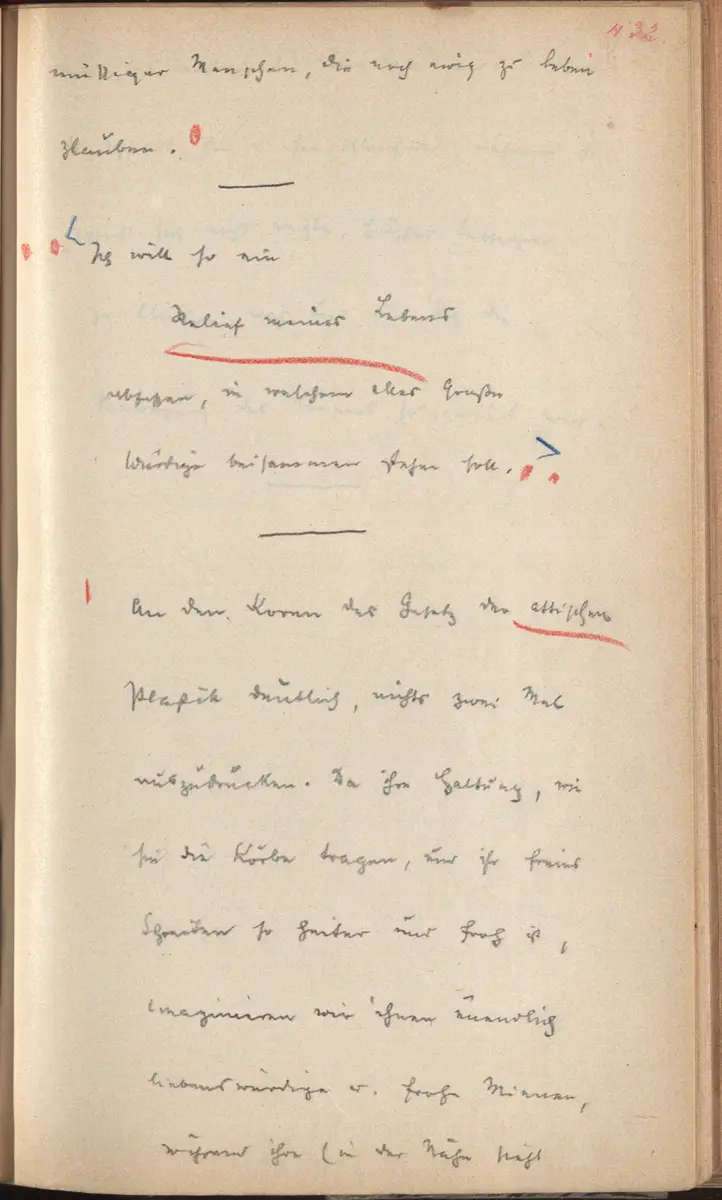 müssiger Menschen, die noch ewig zu leben
glauben.
Ich will so ein
Relief meines Lebens
abfassen, in welchem alles Grosse
Würdige beisammen stehn soll.
An den Koren das Gesetz der attischen
Plastik deutlich, nichts zwei Mal
auszudrücken. Da ihre Haltung, wie
sie die Körbe tragen, und ihr freies
Schreiten so heiter und froh ist,
imaginieren wir ihnen unendlich
liebenswürdige u. frohe Mienen,
während ihre (in der Nähe sieht